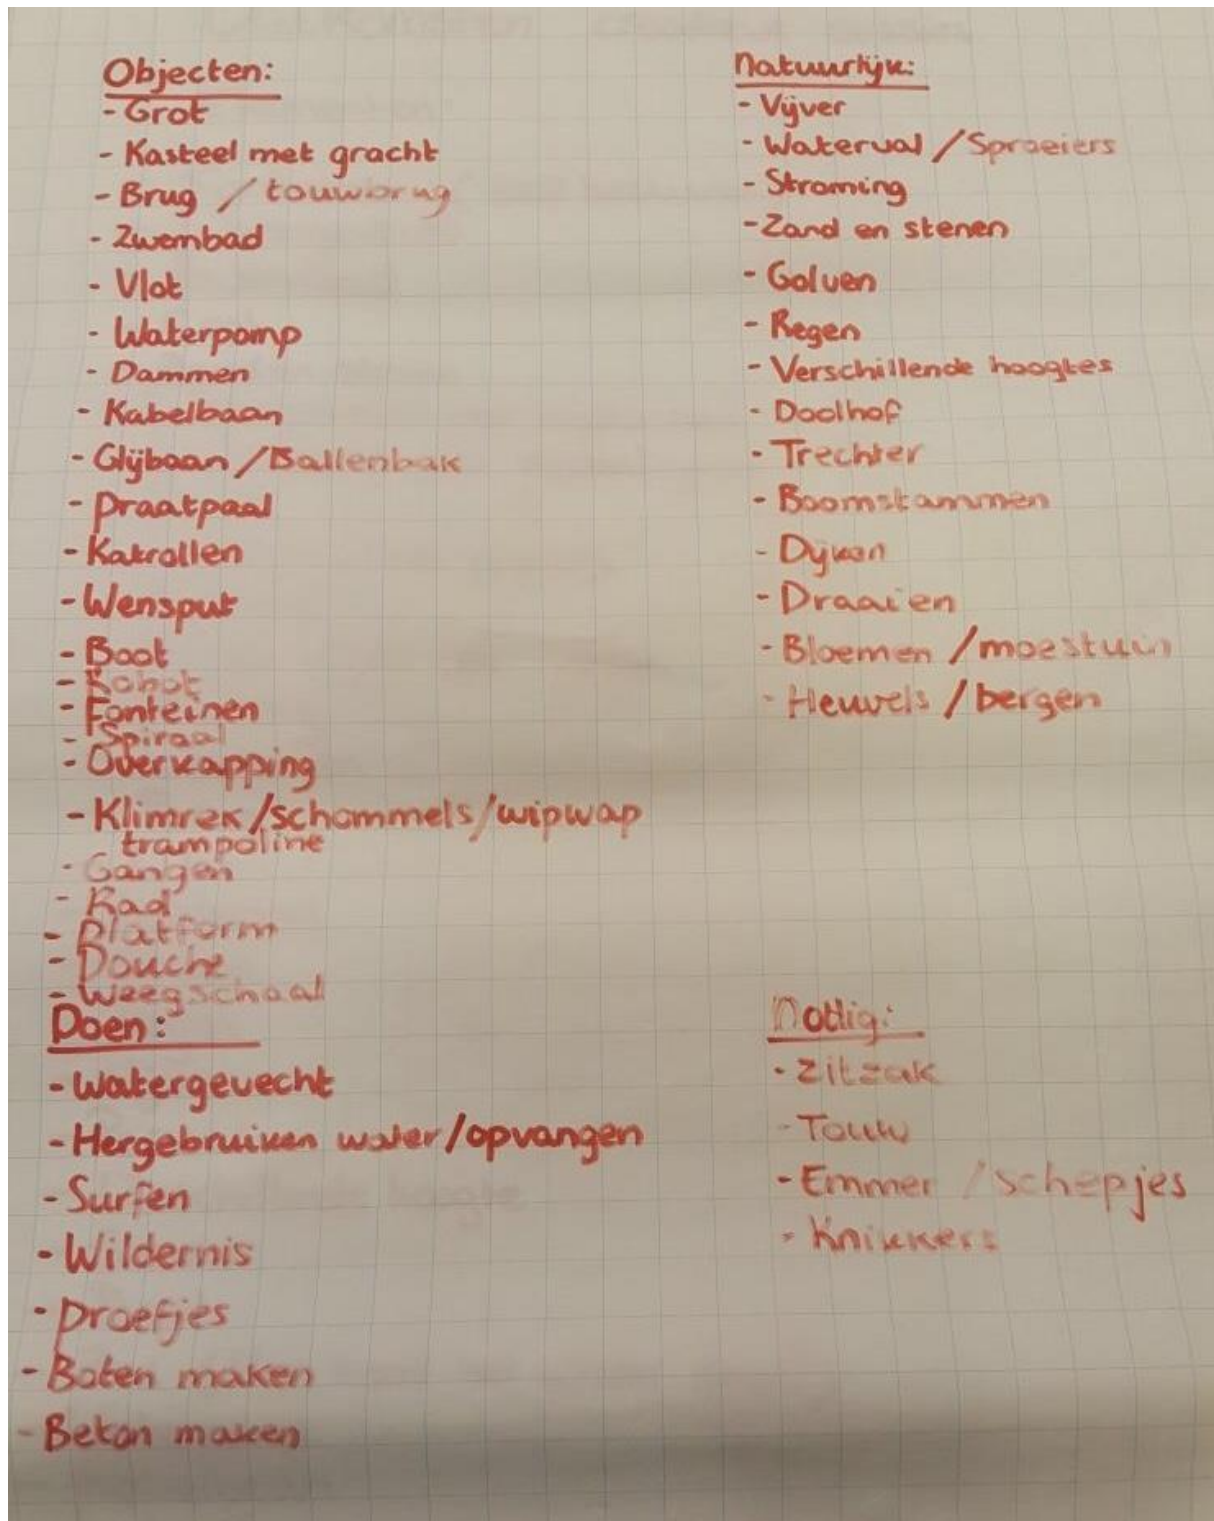 Objecten:
- Grot
- Kasteel met gracht
- Brug / touwbrug
- Zwembad
- Vlot
- Waterpomp
- Dammen
- Kabelbaan
- Glijbaan / Ballenbak
- Praatpaal
- Katrollen
- Wensput
- Boot
- Robot
- Fonteinen
- Spiraal
- Overkapping
- Klimrek / schommels / wipwap
trampoline
- Gangen
- Rad
- Platform
- Douche
- Weegschaal
Doen:
- Watergevecht
- Hergebruiken water / opvangen
- Surfen
- Wildernis
- Proefjes
- Boten maken
- Beton maken
Natuurlijk:
- Vijver
- Waterval / Sproeiers
- Stroming
- Zand en stenen
- Golven
- Regen
- Verschillende hoogtes
- Doolhof
- Trechter
- Boomstammen
- Dijken
- Draaien
- Bloemen / moestuin
- Heuvels / bergen
Nodig:
- Zitzak
- Touw
- Emmer / schepjes
- Knikkers